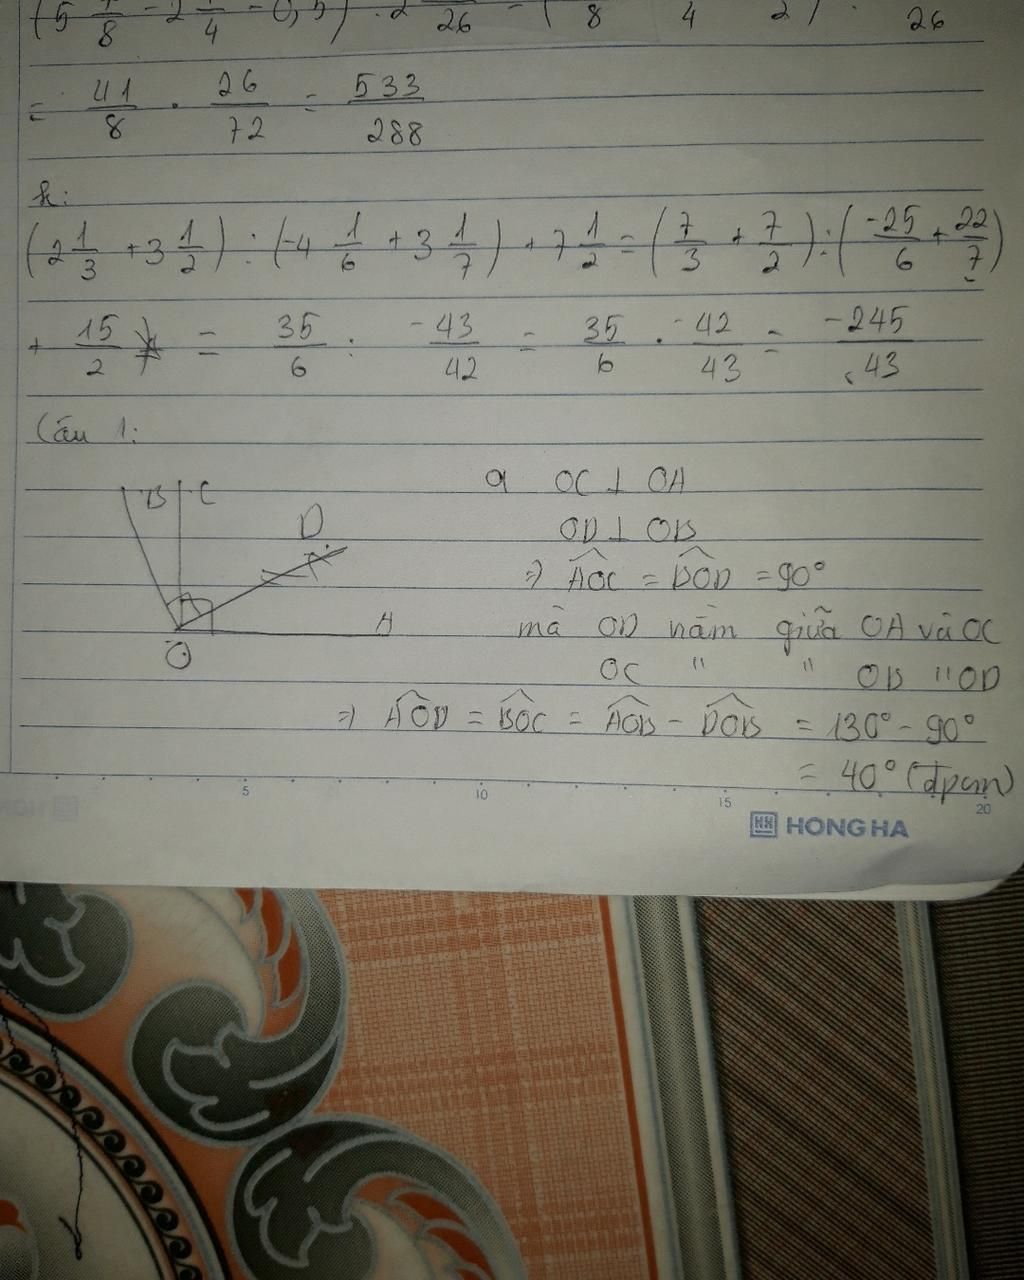 (5 7/8 - 2 1/4 - 0,5) : 2 /26 = ( /8 /4 /2 ) : /26
= 41/8 . 26/72 = 533/288
k:
(2 1/3 + 3 1/2) : (-4 1/6 + 3 1/7) + 7 1/2 = (7/3 + 7/2) : (-25/6 + 22/7)
+ 15/2 = 35/6 : -43/42 = 35/6 . -42/43 = -245/43
Câu 1:
B C
D
A
O
a OC ⊥ OA
OD ⊥ OB
=> AOC = BOD = 90°
mà OD nằm giữa OA và OC
OC " " OB " OD
=> AOD = BOC = AOB - DOB = 130° - 90°
= 40° (đpcm)
5 10 15 20
HH HONG HA